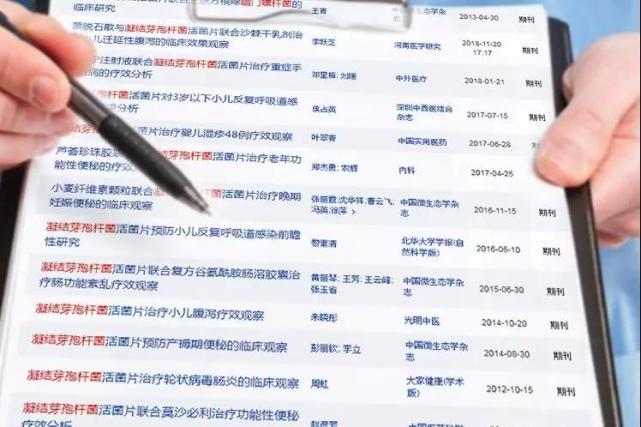 根除幽门螺杆菌的
临床研究 王青 中国微生态学杂
志 2013-04-30 期刊
蒙脱石散与凝结芽孢杆菌活菌片联合沙棘干乳剂治
小儿迁延性腹泻的临床效果观察 李跃芝 河南医学研究 2018-11-20
17:17 期刊
注射液联合凝结芽孢杆菌活菌片治疗重症手
病的疗效分析 中外医疗 2018-01-21 期刊
孢杆菌活菌片对3岁以下小儿反复呼吸道感
分析 侯占英 深圳中西医结合
杂志 2017-07-15 期刊
孢杆菌活菌片治疗婴儿湿疹48例疗效观察 叶翠香 中国实用医药 2017-06-28 期刊
芦荟珍珠胶 孢杆菌活菌片治疗老年功
能性便秘的疗效 郑杰勇; 农辉 内科 2017-04-25 期刊
小麦纤维素颗粒联合凝结芽孢杆菌活菌片治疗晚期
妊娠便秘的临床观察 张丽霞;沈华祥;曹云飞;
冯英;徐萍 中国微生态学杂
志 2016-11-15 期刊
凝结芽孢杆菌活菌片预防小儿反复呼吸道感染前瞻
性研究 黎素清 北华大学学报(自
然科学版) 2016-06-10 期刊
凝结芽孢杆菌活菌片联合复方谷氨酰胺肠溶胶囊治
疗肠功能紊乱疗效观察 黄丽琴; 王芳; 王云峰;
张玉省 中国微生态学杂
志 2015-06-30 期刊
凝结芽孢杆菌活菌片治疗小儿腹泻疗效观察 朱晓彤 光明中医 2014-10-20 期刊
凝结芽孢杆菌活菌片预防产褥期便秘的临床观察 彭丽钦; 李立 中国微生态学杂
志 2014-08-30 期刊
凝结芽孢杆菌活菌片治疗轮状病毒肠炎的临床观察 周虹 大家健康(学术
版) 2012-10-15 期刊
凝结芽孢杆菌活菌片联合莫沙必利治疗功能性便秘
疗效分析